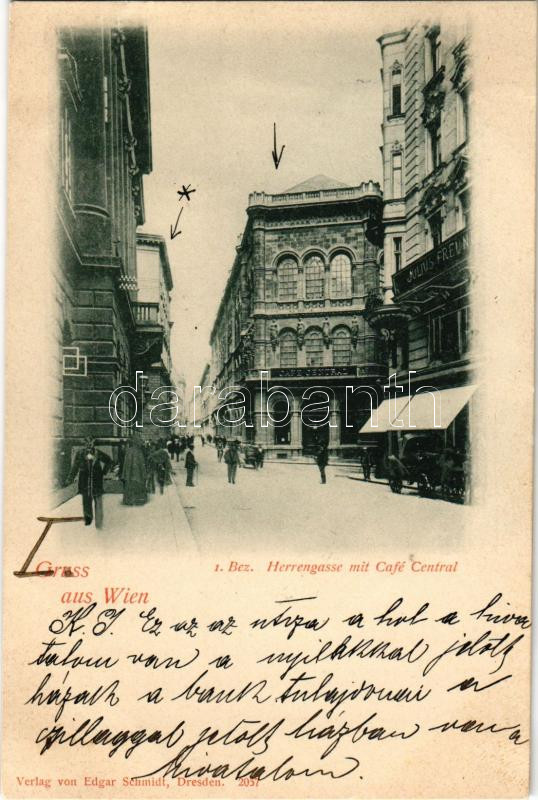 JULIUS FREUN
CAFÉ CENTRAL
darabanth
Gruss
aus Wien
1. Bez. Herrengasse mit Café Central
K. J. Ez az az utcza a hol a hiva
talom van a nyilakkal jelölt
házak a bank tulajdonai a
czillaggal jelölt házban van a
hivatalom.
Verlag von Edgar Schmidt, Dresden. 2057